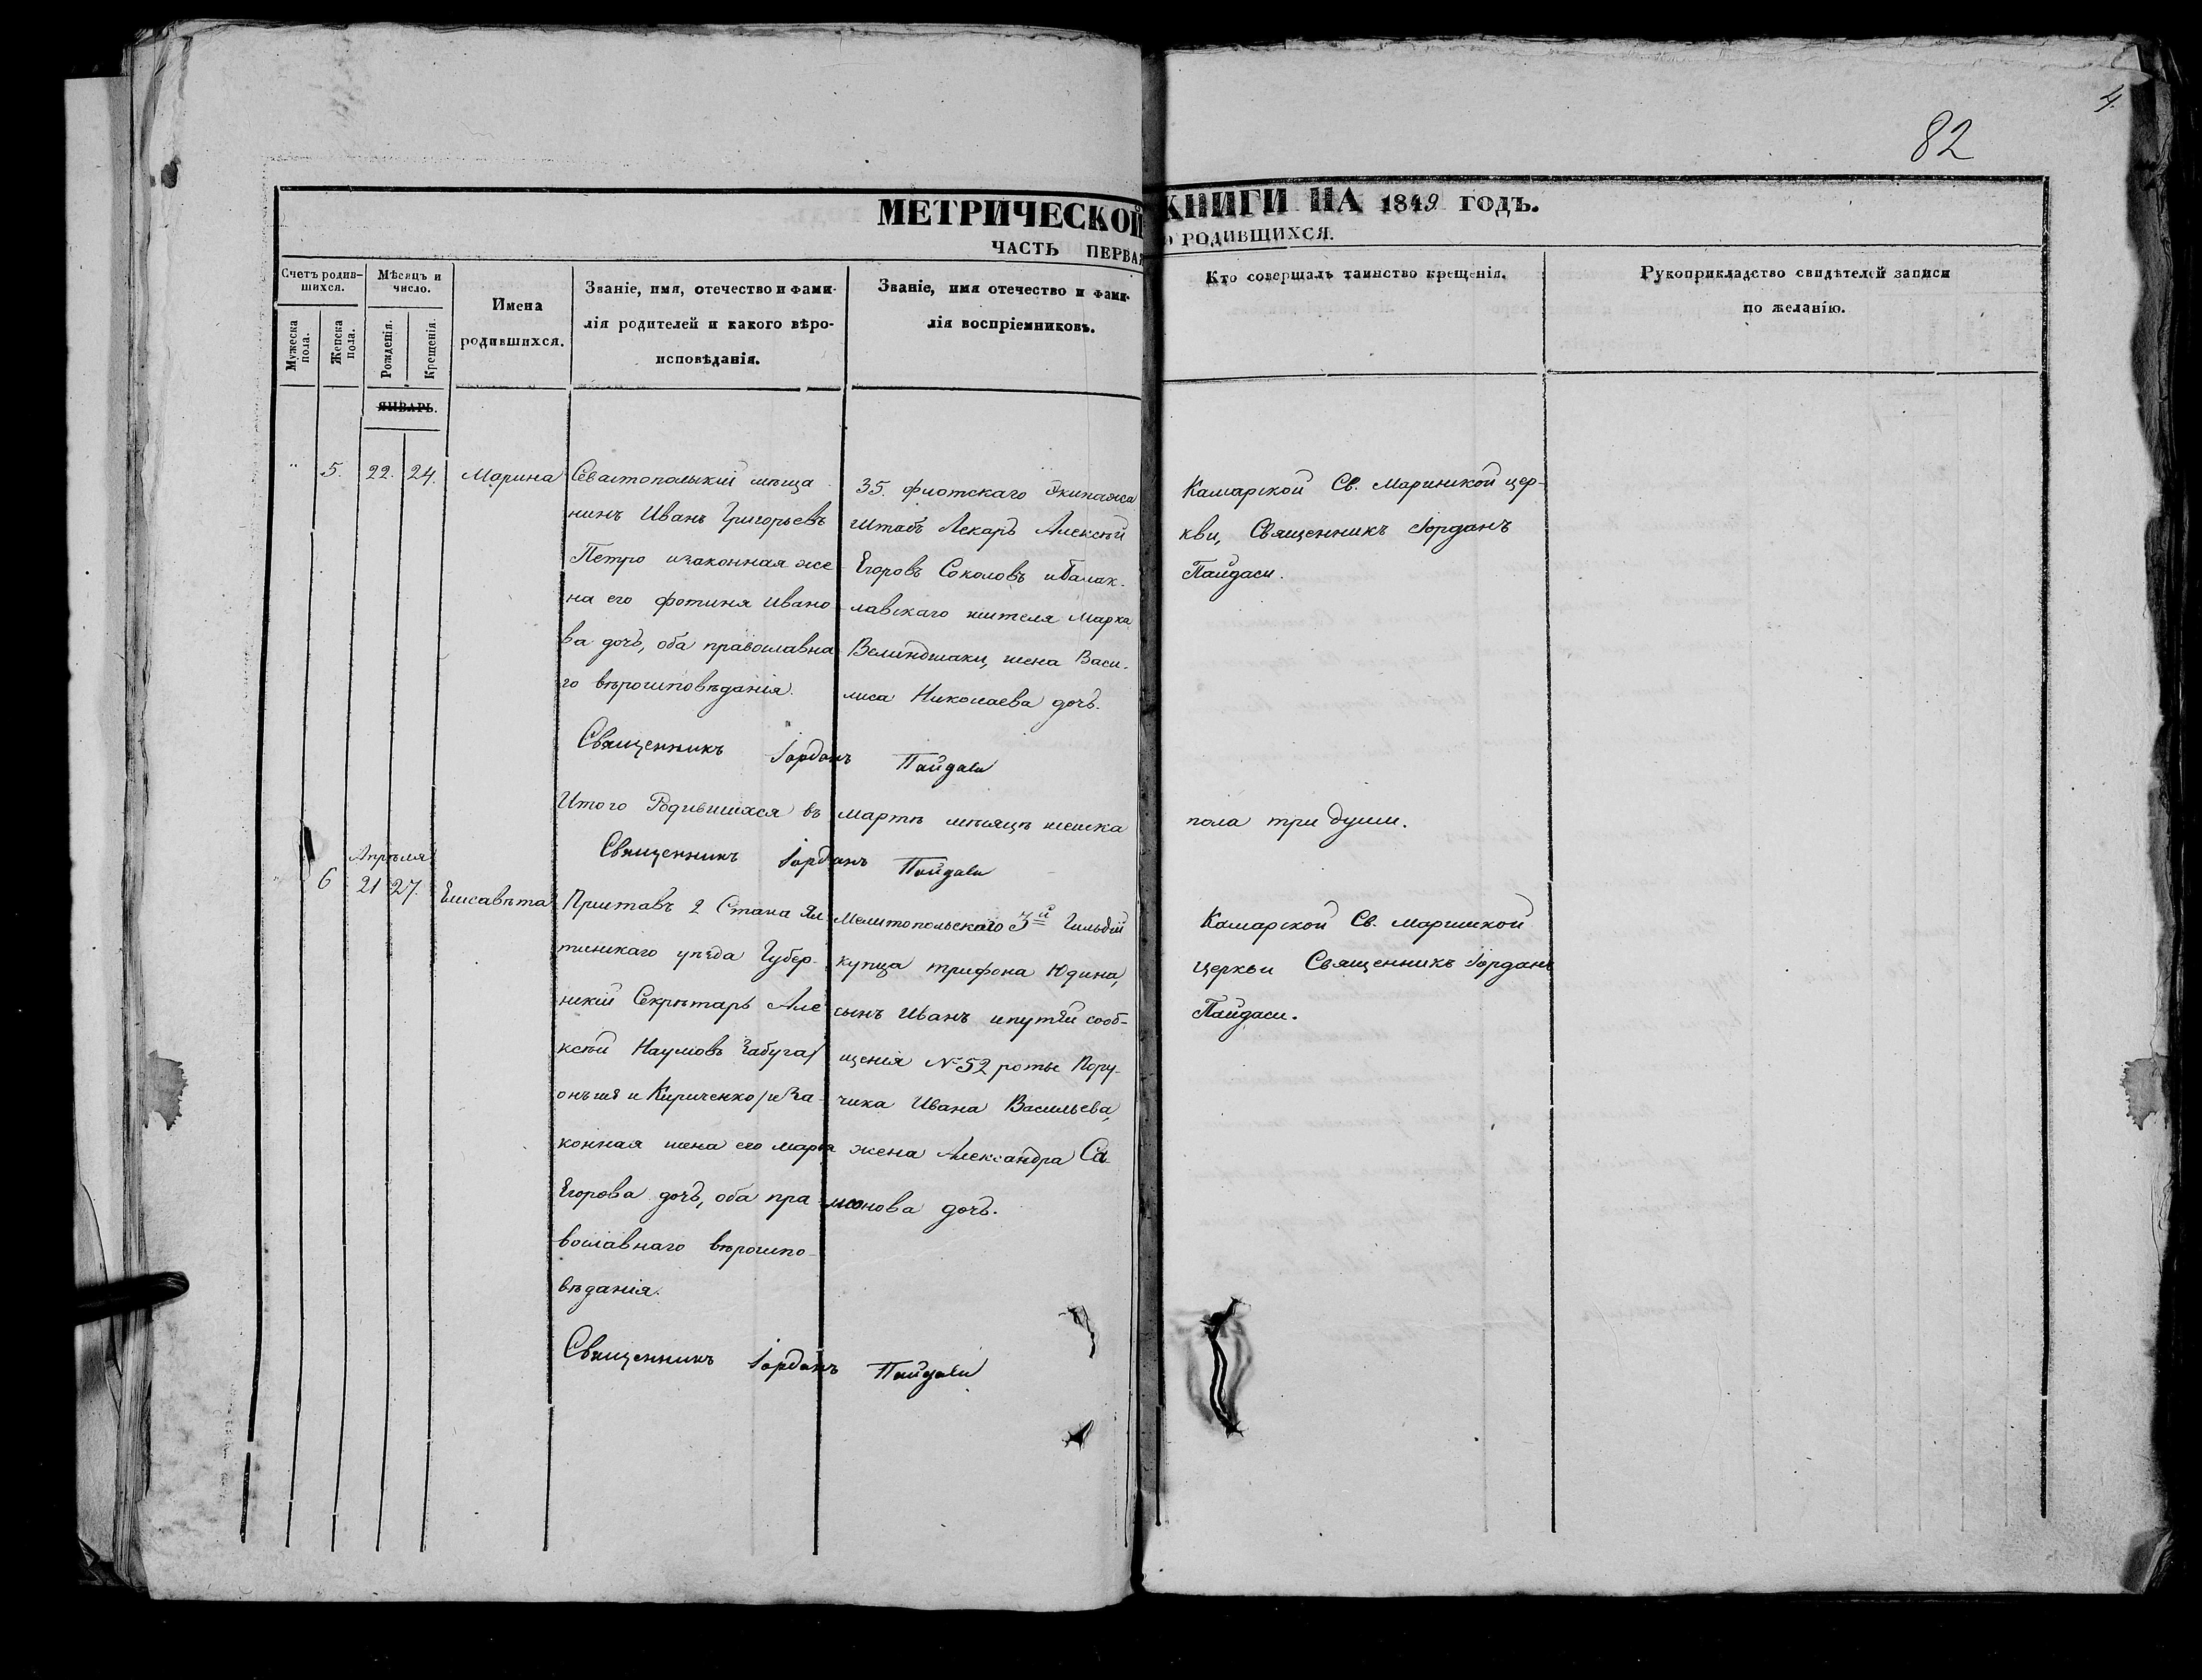 4.
82
МЕТРИЧЕСКОЙ КНИГИ НА 1849 ГОДЪ.
ЧАСТЬ ПЕРВАЯ О РОДИВШИХСЯ.
Счетъ родив-
шихся.
Мужеска
пола.
Женска
пола.
Мѣсяцъ и
число.
Рожденія.
Крещенія.
Имена
родившихся.
Званіе, имя, отечество и фами-
лія родителей и какого вѣро-
исповѣданія.
Званіе, имя отечество и фами-
лія воспріемниковъ.
Кто совершалъ таинство крещенія.
Рукоприкладство свидѣтелей записи
по желанію.
ЯНВАРЬ.
" 5. 22. 24. Марина
Севастопольскій мѣща-
нинъ Иванъ Григорьевъ
Петро изаконная же-
на его Фотиня Ивано-
ва дочь, оба православна-
го вѣроисповѣданія.
35. Флотскаго Экипажа
Штабъ Лекарь Алексѣй
Егоровъ Соколовъ иБалак-
лавскаго жителя Марка
Велиндшаки, жена Васи-
лиса Николаева дочь.
Камарской Св. Маринской цер-
кви, Священникъ Іорданъ
Пайдаси.
Священникъ Іорданъ Пайдаси
Итого Родившихся въ мартѣ мѣсяцѣ женска пола три души.
Священникъ Іорданъ Пайдаси
Апрѣля
6 21 27. Елисавѣта
Приставъ 2 Стана Ял-
тинскаго уѣзда Губер-
нскій Секрѣтарь Але-
ксѣй Наумовъ Забуга/
онъ же и Кириченко/и За-
конная жена его Марья
Егорова дочь, оба пра-
вославнаго вѣроиспо-
вѣданія.
Мелитопольскаго 3й Гильдіи
купца Трифона Юдина,
сынъ Иванъ ипутей сооб-
щенія № 52 роты Пору-
чика Ивана Васильева,
жена Александра Са-
монова дочь.
Камарской Св. Маринской
церкви Священникъ Іорданъ
Пайдаси.
Священникъ Іорданъ Пайдаси